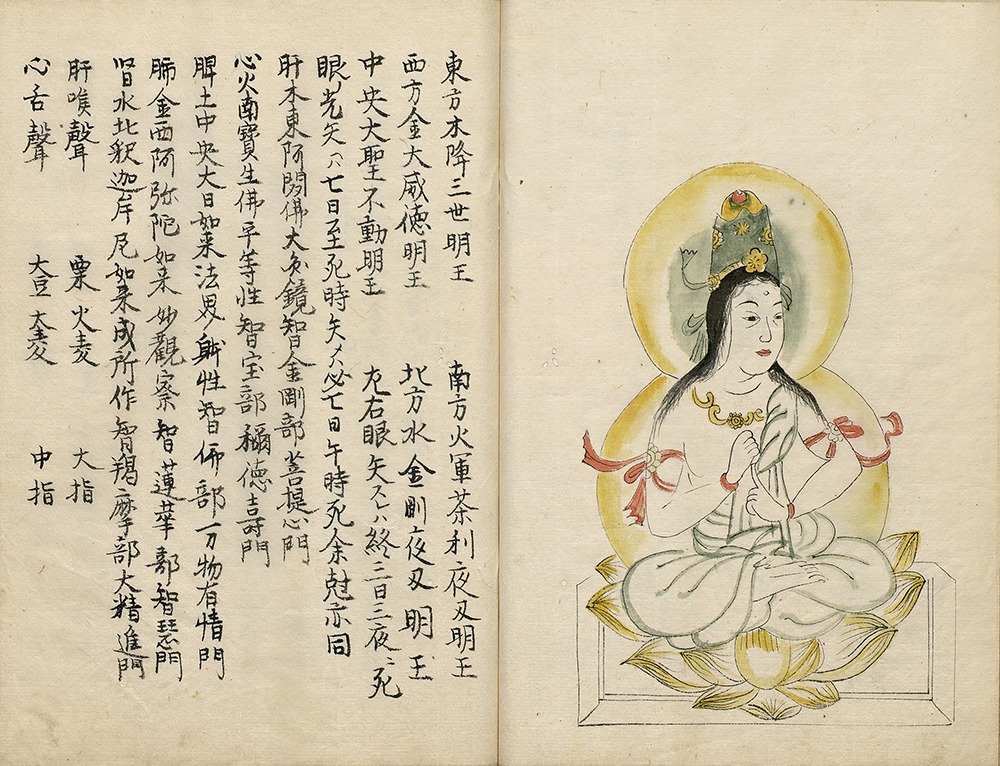 東方木降三世明王 南方火軍荼利夜叉明王
西方金大威徳明王 北方水金剛夜叉明王
中央大聖不動明王 左右眼矢スレハ終三日三夜ニ死
眼ノ光矢ハ七日至死時矢メ必七日午時死余尅亦同
肝木東阿閦佛大圓鏡智金剛部菩提心門
心火南寳生佛平等性智宝部福徳壽門
脾土中央大日如来法界躰性智佛部一万物有情門
肺金西阿弥陀如来妙觀察智蓮華部智慧門
腎水北釈迦牟尼如来成所作智羯摩部大精進門
肝喉聲 粟火麦 大指
心舌聲 大豆大麦 中指